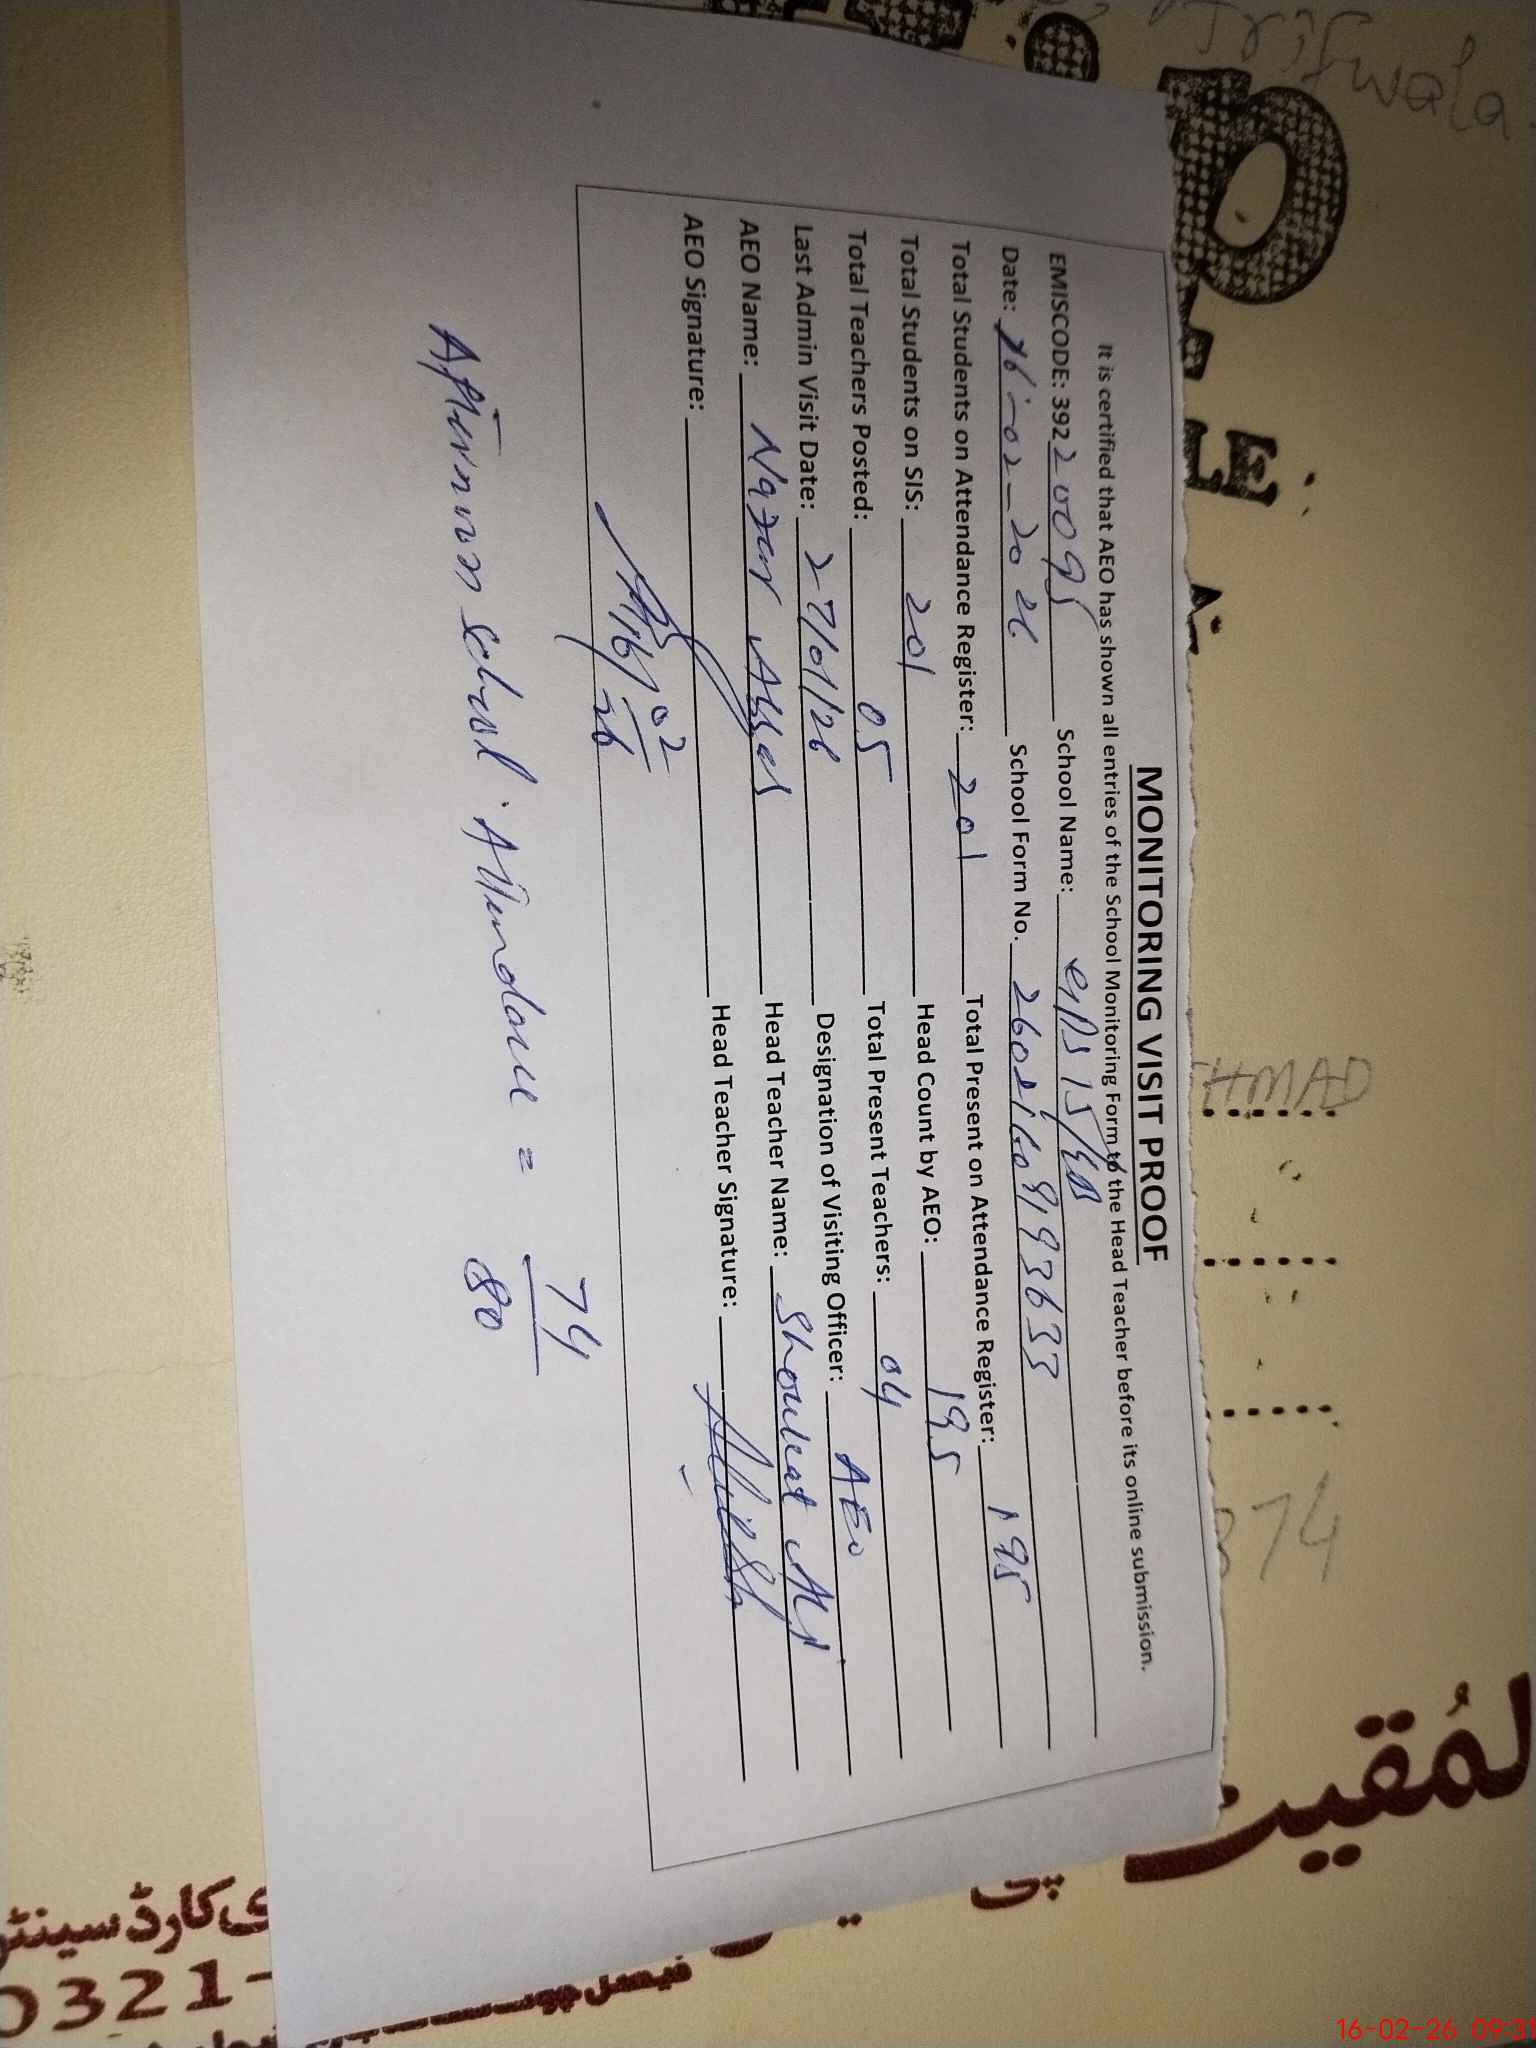 MONITORING VISIT PROOF
It is certified that AEO has shown all entries of the School Monitoring Form to the Head Teacher before its online submission.
EMISCODE: 39220095 School Name:
Date: 16-02-2026 School Form No.
Total Students on Attendance Register: 201 Total Present on Attendance Register: 195
Total Students on SIS: 201 Head Count by AEO: 195
Total Teachers Posted: 05 Total Present Teachers: 04
Last Admin Visit Date: 27/01/26 Designation of Visiting Officer: AEO
AEO Name: Head Teacher Name: Showkat Ali
AEO Signature: Head Teacher Signature:
16/02/26
Afternoon School Attendance = 74/80
HMAD
74
لمُقیت
ی کارڈ سینٹر
0321-
16-02-26 09:31